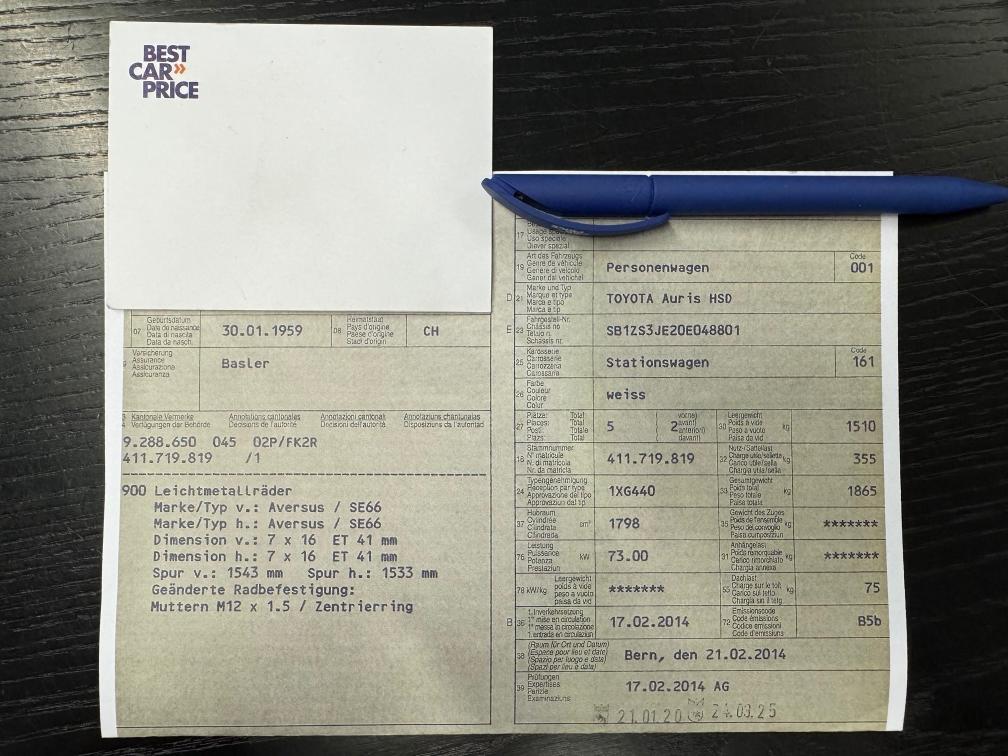 BEST
CAR»
PRICE
07 Geburtsdatum
Date de naissance
Data di nascita
Data da nasch.
30.01.1959
08 Heimatstaat
Pays d'origine
Paese d'origine
Stadi d'origin
CH
Versicherung
Assurance
Assicurazione
Assicuranza
Basler
Kantonale Vermerke Annotations cantonales Annotazioni cantonali Annotaziuns chantunalas
Verfügungen der Behörde Décisions de l'autorité Decisioni dell'autorità Disposiziuns da l'autoritad
9.288.650 045 02P/FK2R
411.719.819 /1
900 Leichtmetallräder
Marke/Typ v.: Aversus / SE66
Marke/Typ h.: Aversus / SE66
Dimension v.: 7 x 16 ET 41 mm
Dimension h.: 7 x 16 ET 41 mm
Spur v.: 1543 mm Spur h.: 1533 mm
Geänderte Radbefestigung:
Muttern M12 x 1.5 / Zentrierring
17
Uso speciale
Diever spezial
19 Art des Fahrzeugs
Genre de véhicule
Genere di veicolo
Gener dal vehichel
Personenwagen
Code
001
D 21 Marke und Typ
Marque et type
Marca e tipo
Marca e tip
TOYOTA Auris HSD
E 23 Fahrgestell-Nr.
Châssis no
Telaio n.
Schassis nr.
SB1ZS3JE20E048801
25 Karosserie
Carrosserie
Carrozzeria
Carossaria
Stationswagen
Code
161
26 Farbe
Couleur
Colore
Colur
weiss
27 Plätze: Total
Places: Total
Posti: Totale
Plazs: Total
5
vorne)
2 avant)
anteriori)
davant)
30 Leergewicht
Poids à vide
Peso a vuoto
Paisa da vid
kg
1510
18 Stammnummer
N° matricule
N. di matricola
Nr. da matricla
411.719.819
32 Nutz-/Sattellast
Charge utile/sellette
Carico utile/sella
Chargia utila/sella
kg
355
24 Typengenehmigung
Réception par type
Approvazione del tipo
Approvaziun dal tip
1XG440
33 Gesamtgewicht
Poids total
Peso totale
Paisa totala
kg
1865
37 Hubraum
Cylindrée
Cilindrata
Cilindrada
cm³
1798
35 Gewicht des Zuges
Poids de l'ensemble
Peso del convoglio
Paisa cumposiziun
kg
*******
76 Leistung
Puissance
Potenza
Prestaziun
kW
73.00
31 Anhängelast
Poids remorquable
Carico rimorchiato
Chargia annexa
kg
*******
78 kW/kg
Leergewicht
poids à vide
peso a vuoto
paisa da vid
*******
55 Dachlast
Charge sur le toit
Carico sul tetto
Chargia sin il tetg
kg
75
B 36 1. Inverkehrsetzung
1re mise en circulation
1a messa in circolazione
1. entrada en circulaziun
17.02.2014
72 Emissionscode
Code émissions
Codice emissioni
Code d'emissiuns
B5b
38 (Raum für Ort und Datum)
(Espace pour lieu et date)
(Spazio per luogo e data)
(Spazi per lieu e data)
Bern, den 21.02.2014
39 Prüfungen
Expertises
Perizie
Examinaziuns
17.02.2014 AG
21.01.20 24.03.25